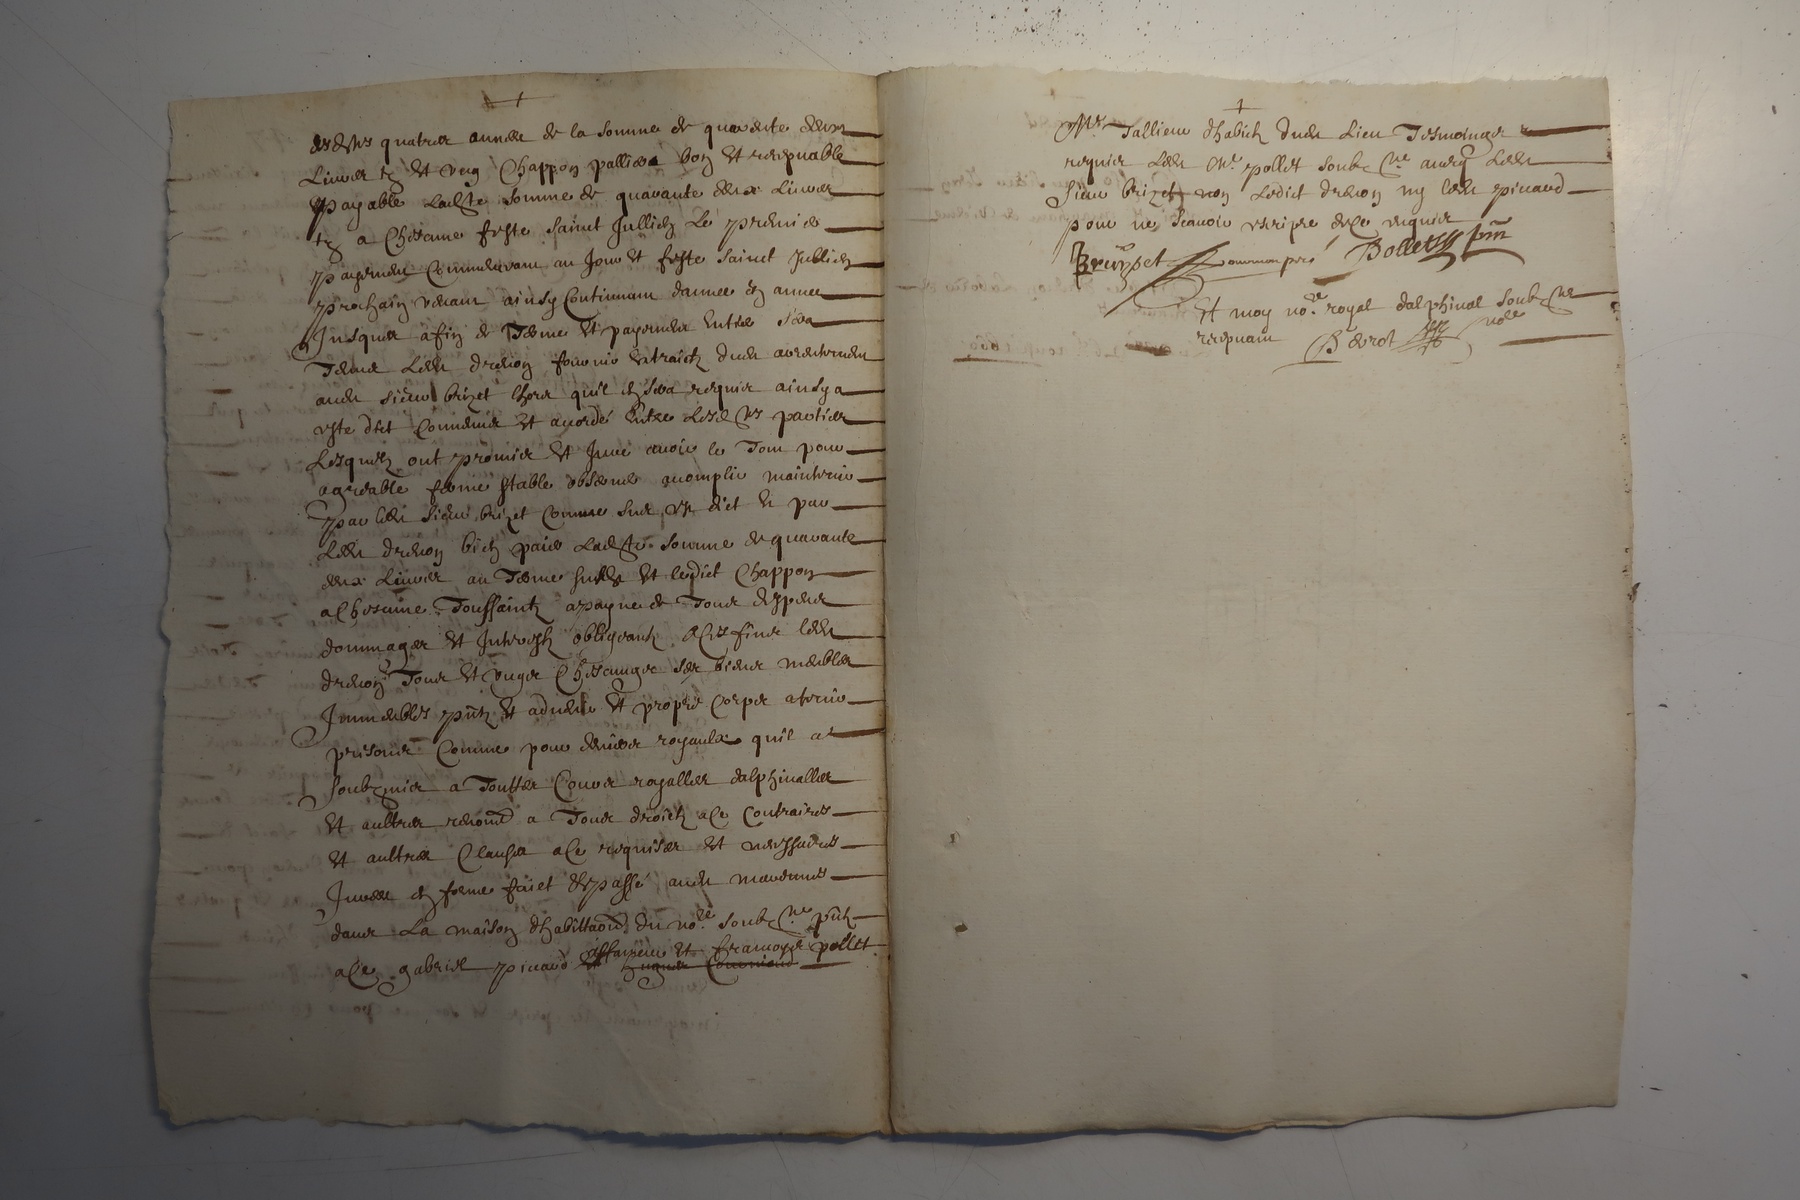 desdites quatres annee de la somme de quarente deux
Livres tz et ung Chappon pallier bon et recepuable
payable ladte somme de quarante deux Livres
tz a Chescune feste saint Jullien Le premier
payement Commencant au Jour et feste Sainct Jullien
prochain venant ainsy Continuant dannee en annee
Jusques afin de Terme et payement Entier sera
Tenu Ledt drevon fournir extraict dudt arrentement
audt sieur brizet hors quil en sera requis ainsy a
este dict Convenu et acordé Entre Lesdtes parties
Lesquels ont promis et Juré avoir le Tout pour
agreable ferme stable observer acomplir maintenir
par ledt sieur brizet Comme sus est dict et par
Ledt drevon bien paier Ladte somme de quarante
deux Livres au Terme susdt et ledict Chappon
a Chescune Toussaintz a payne de Tous despens
dommages et Interestz obligeantz a ces fins ledt
drevon Tous et ungs Chescungs ses biens meubles
Immeubles pntz et advenir et propre Corps a tenir
prison Comme pour deniers royaulx quil a
soubzmis a Touttes Cours royalles dalphinalles
et aultres renoncé a Tous droictz a ce Contraires
et aultres Clauses a ce requises et necessaires
Jurees en forme faict et passé audt
dans La maison dhabittaon du nore soubzne pntz
a ce gabriel pinard et francoys pollet
Mre Tallieur dhabitz dudt Lieu Tesmoings
requis Ledt Mre pollet soubzne avecq Ledt
sieur brizet non Ledict drevon ny ledt pinard
pour ne scavoir escripre de ce requis
Breyzet Pollet pnt
Et moy nore royal dalphinal soubzne
recepuant nore